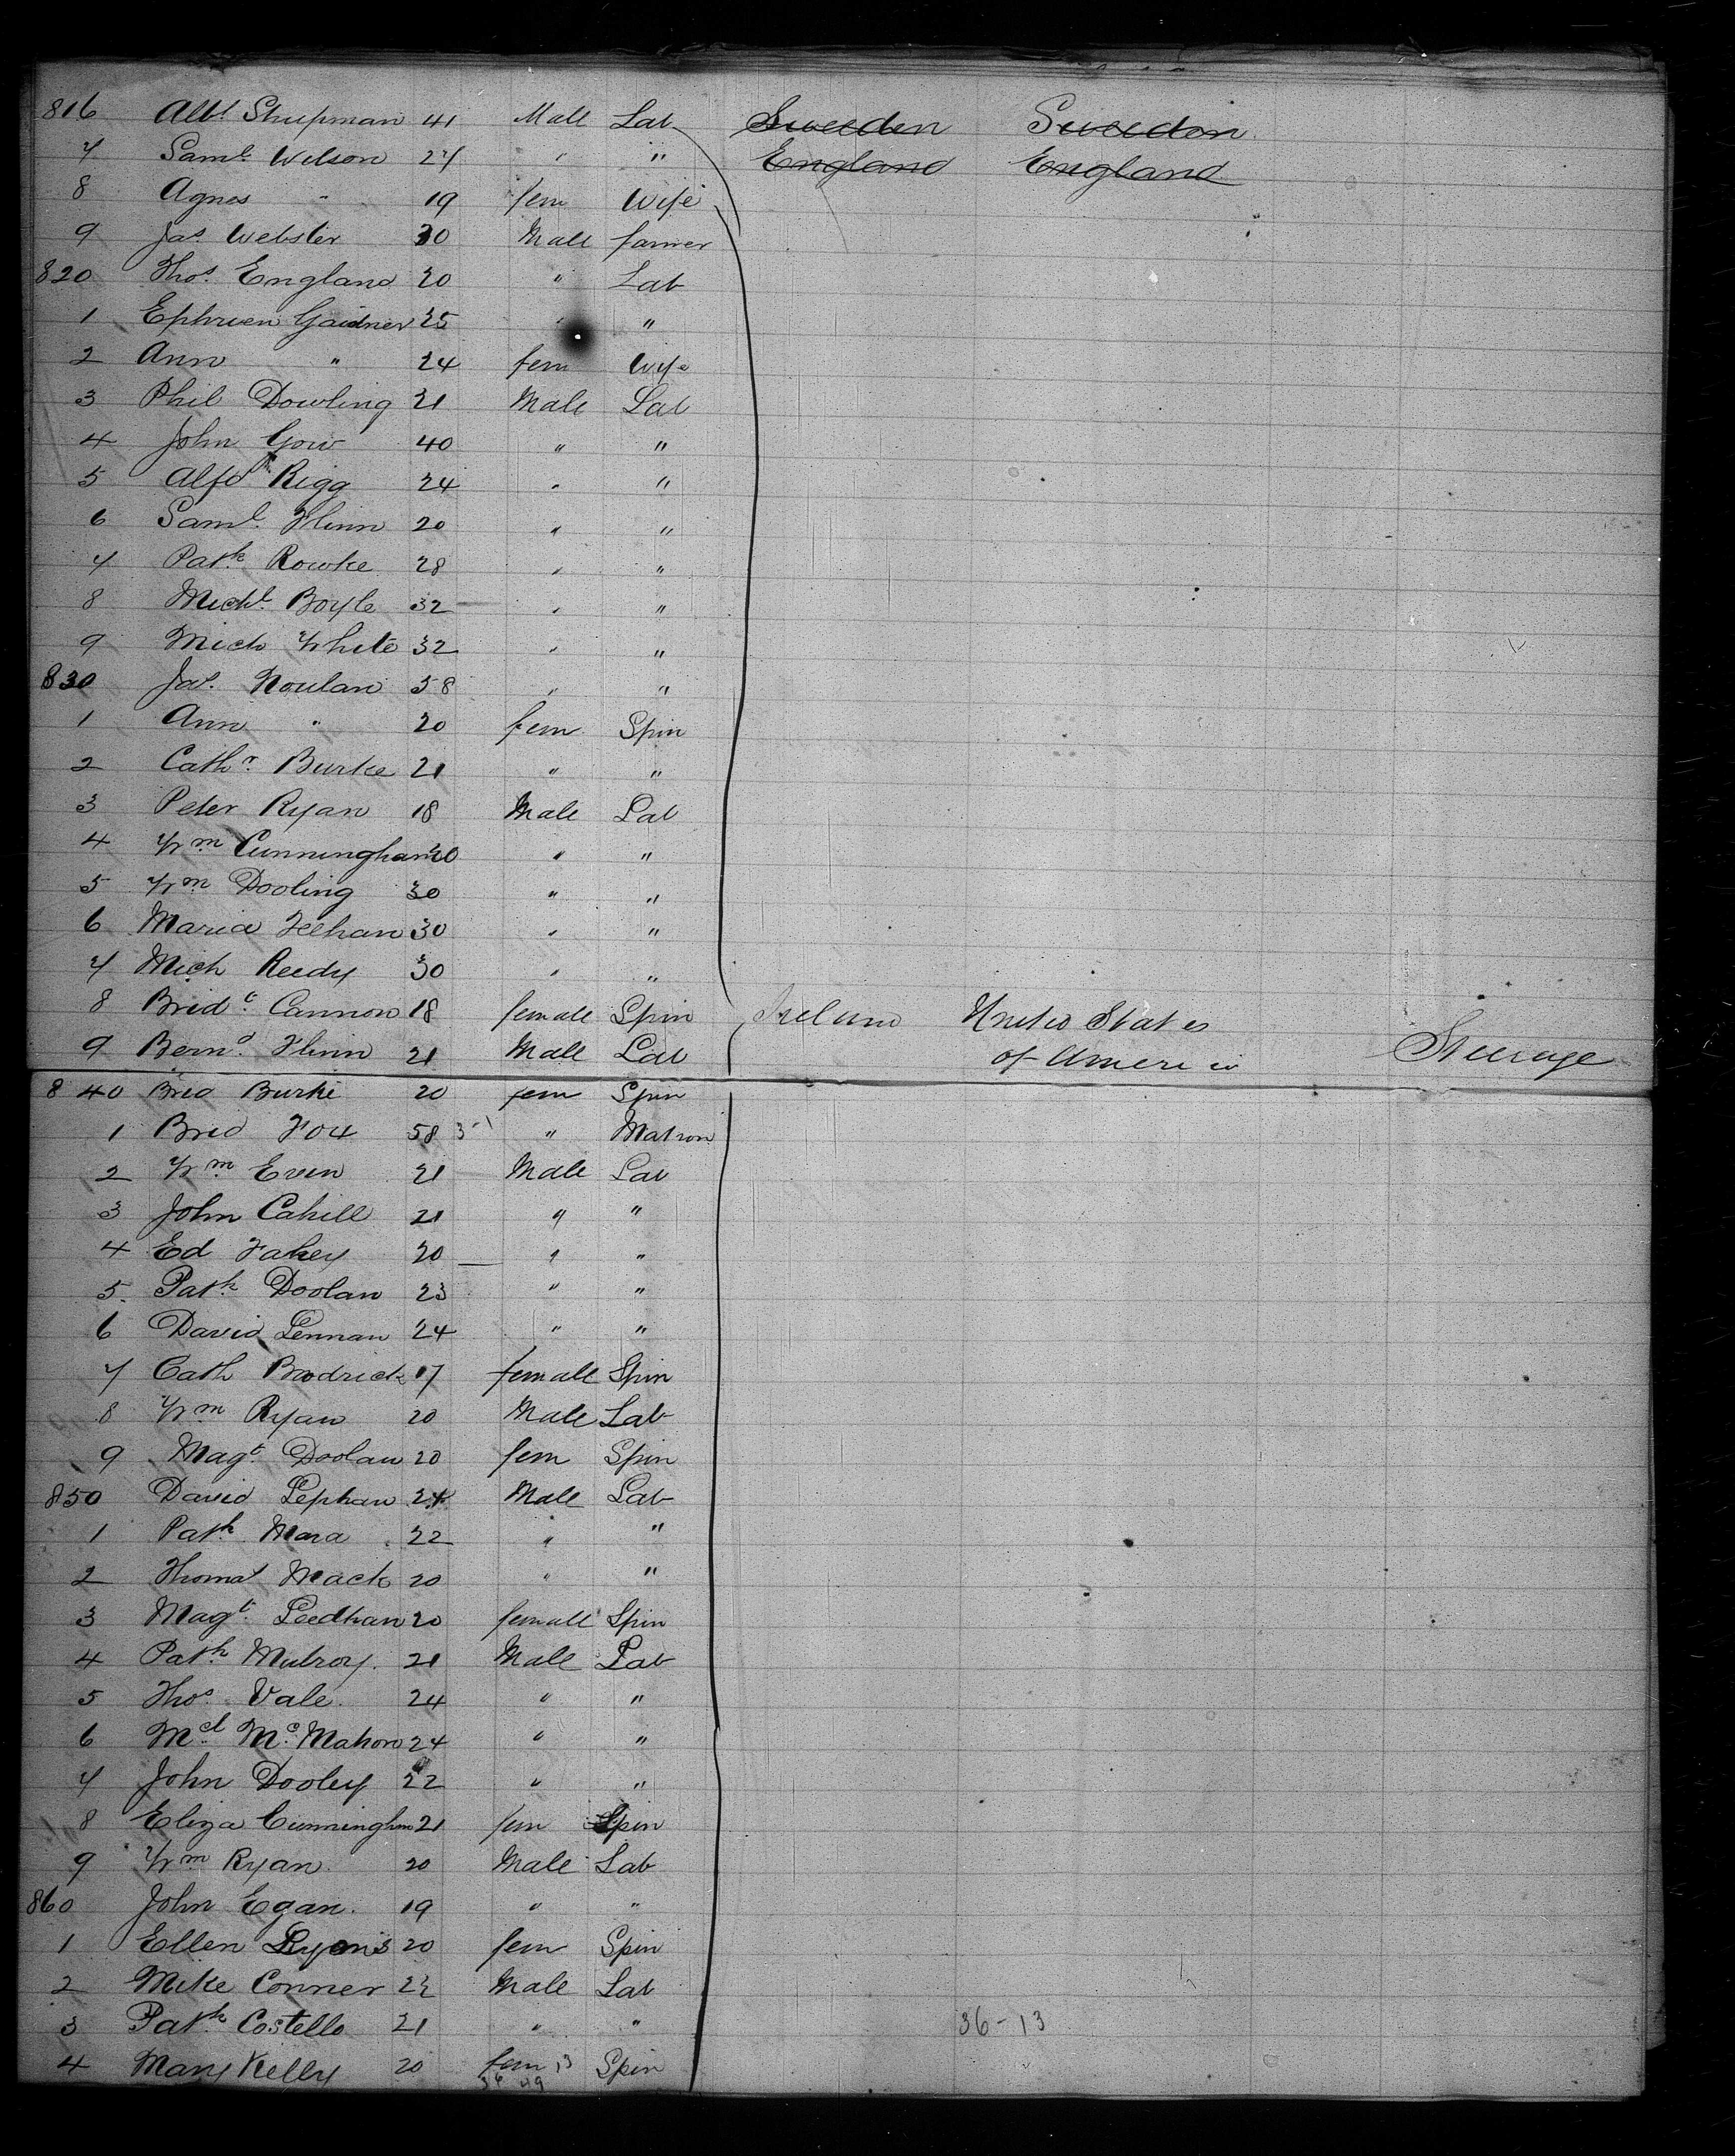 816 Albt Shupman 41 Male Lab Sweeden Sweedon
7 Saml Wilson 27 " " England England
8 Agnes " 19 fem Wife
9 Jas Webster 30 Male farmer
820 Thos England 20 " Lab
1 Ephriem Gaidner 25 " "
2 Ann " 24 fem Wife
3 Phil Dowling 21 Male Lab
4 John Gow 40 " "
5 Alfd Rigg 24 " "
6 Saml Flinn 20 " "
7 Patk Rowke 28 " "
8 Michl Boyle 32 " "
9 Mich White 32 " "
830 Jas Noulan 58 " "
1 Ann " 20 fem Spin
2 Cathr Burke 21 " "
3 Peter Ryan 18 Male Lab
4 Wm Cunningham 20 " "
5 Wm Dooling 30 " "
6 Maria Feehan 30 " "
7 Mich Reedy 30 " "
8 Bridt Cannon 18 female Spin Ireland United States
9 Bernd Flinn 21 Male Lab of America Steerage
840 Brid Burke 20 fem Spin
1 Brid Fox 58 " Matron
2 Wm Even 21 Male Lab
3 John Cahill 21 " "
4 Ed Fahey 20 " "
5 Patk Doolan 23 " "
6 David Lennan 24 " "
7 Cath Brodrick 17 female Spin
8 Wm Ryan 20 Male Lab
9 Magt Doolan 20 fem Spin
850 David Lephan 24 Male Lab
1 Patk Mara 22 " "
2 Thomas Mack 20 " "
3 Magt Leedhan 20 female Spin
4 Patk Mulroy 21 Male Lab
5 Thos Vale 24 " "
6 Ml McMahon 24 " "
7 John Dooley 22 " "
8 Eliza Cunningham 21 fem Spin
9 Wm Ryan 20 Male Lab
860 John Egan 19 " "
1 Ellen Lyons 20 fem Spin
2 Mike Conner 22 Male Lab
3 Patk Costello 21 " " 36-13
4 Mary Kelly 20 fem 13 Spin
36 49